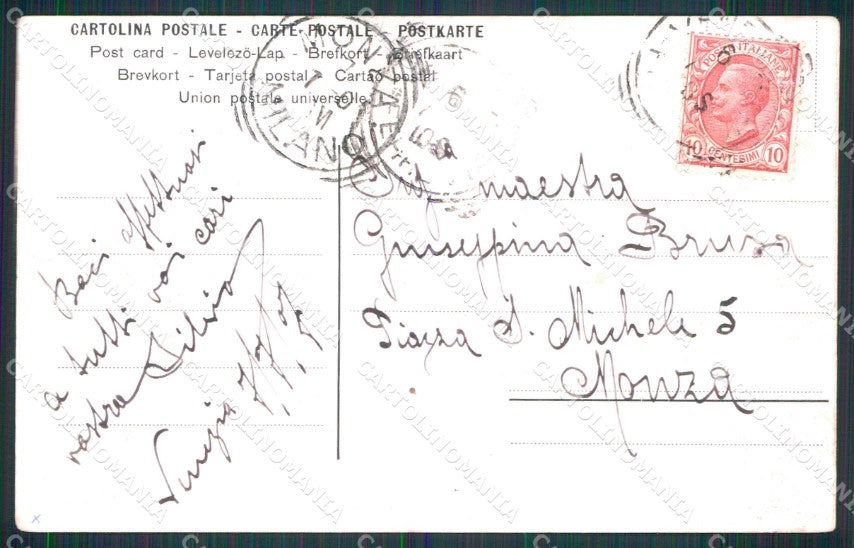 CARTOLINA POSTALE - CARTE POSTALE - POSTKARTE
Post card - Levelező-Lap - Brefkort - Briefkaart
Brevkort - Tarjeta postal - Cartão postal
Union postale universelle.
MONZA
MILANO
POSTE ITALIANE
10 CENTESIMI 10
maestra
Giuseppina Bruza
Piazza S. Michele 5
Monza
Baci affettuosi
a tutti voi cari
vostra Silvia
CARTOLINOMANIA